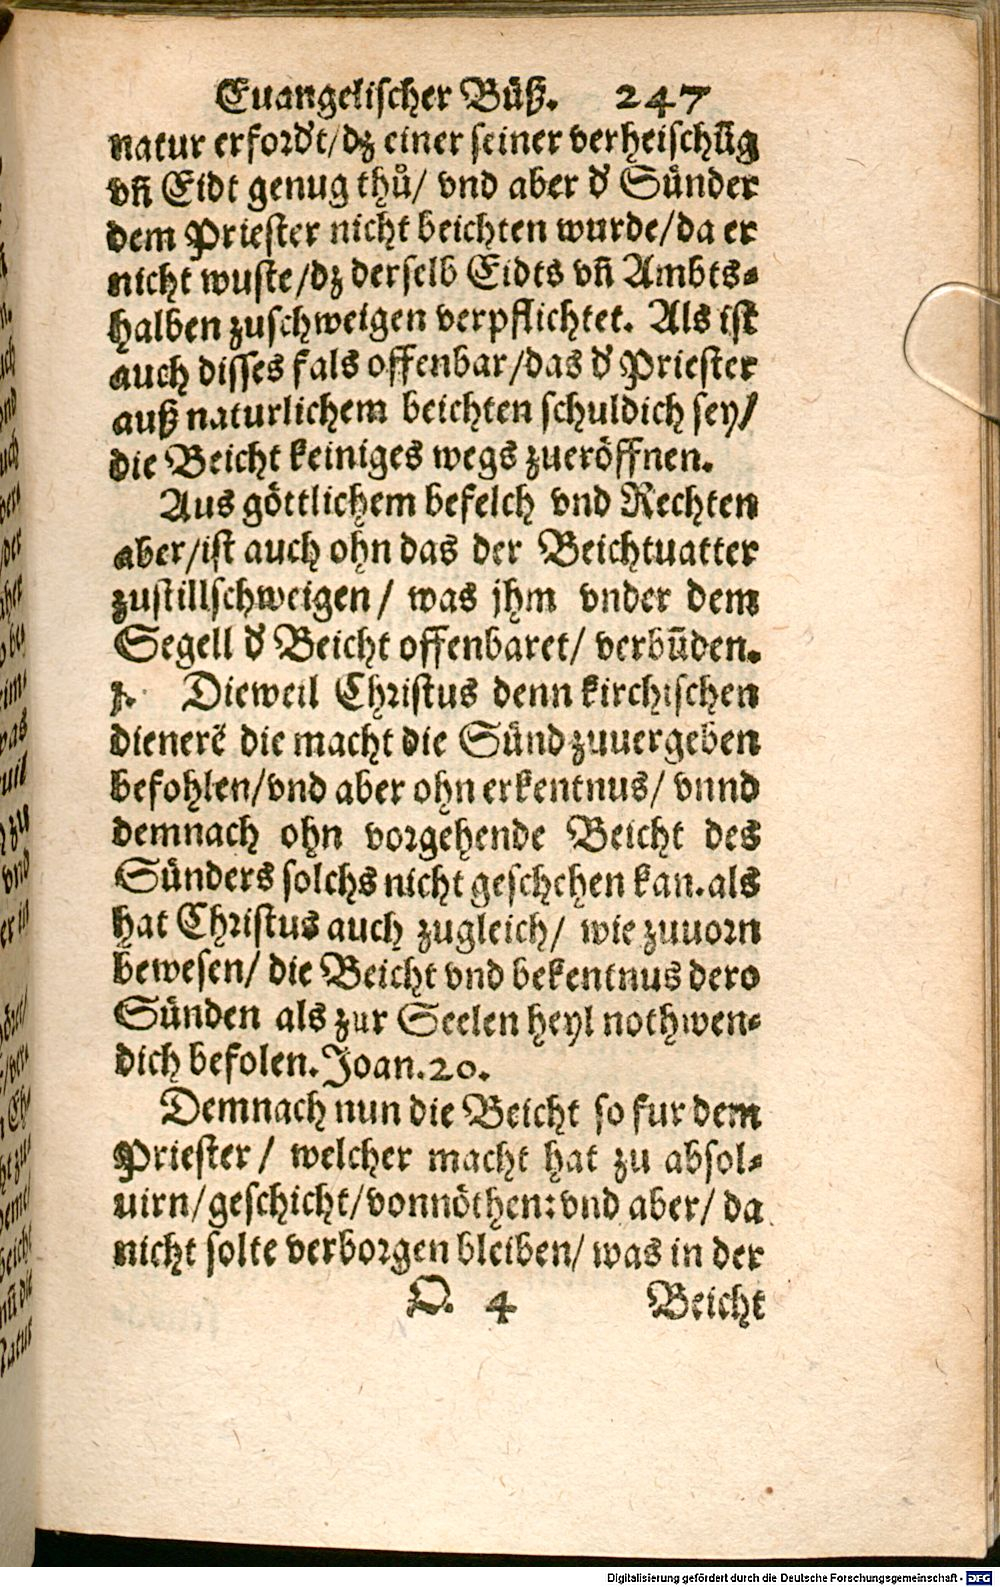 Euangelischer Büß. 247
natur erfordʼt/dz einer seiner verheischūg
vñ Eidt genug thů/ vnd aber dʼ Sünder
dem Priester nicht beichten wurde/da er
nicht wuste/dz derselb Eidts vñ Ambts⸗
halben zuschweigen verpflichtet. Als ist
auch disses fals offenbar/das dʼ Priester
auß naturlichem beichten schuldich sey/
die Beicht keiniges wegs zueröffnen.
Aus göttlichem befelch vnd Rechten
aber/ist auch ohn das der Beichtuatter
zustillschweigen/ was jhm vnder dem
Segell dʼ Beicht offenbaret/ verbūden.
Dieweil Christus denn kirchischen
dienerē die macht die Sünd zuuergeben
befohlen/vnd aber ohn erkentnus/ vnnd
demnach ohn vorgehende Beicht des
Sünders solchs nicht geschehen kan. als
hat Christus auch zugleich/ wie zuuorn
bewesen/ die Beicht vnd bekentnus dero
Sünden als zur Seelen heyl nothwen⸗
dich befolen. Joan. 20.
Demnach nun die Beicht so fur dem
Priester/ welcher macht hat zu absol⸗
uirn/geschicht/vonnöthen: vnd aber/ da
nicht solte verborgen bleiben/ was in der
Q. 4 Beicht
Digitalisierung gefördert durch die Deutsche Forschungsgemeinschaft - DFG